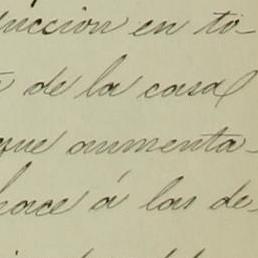 ucción en to-
de la casa
que aumenta-
hace á las de-